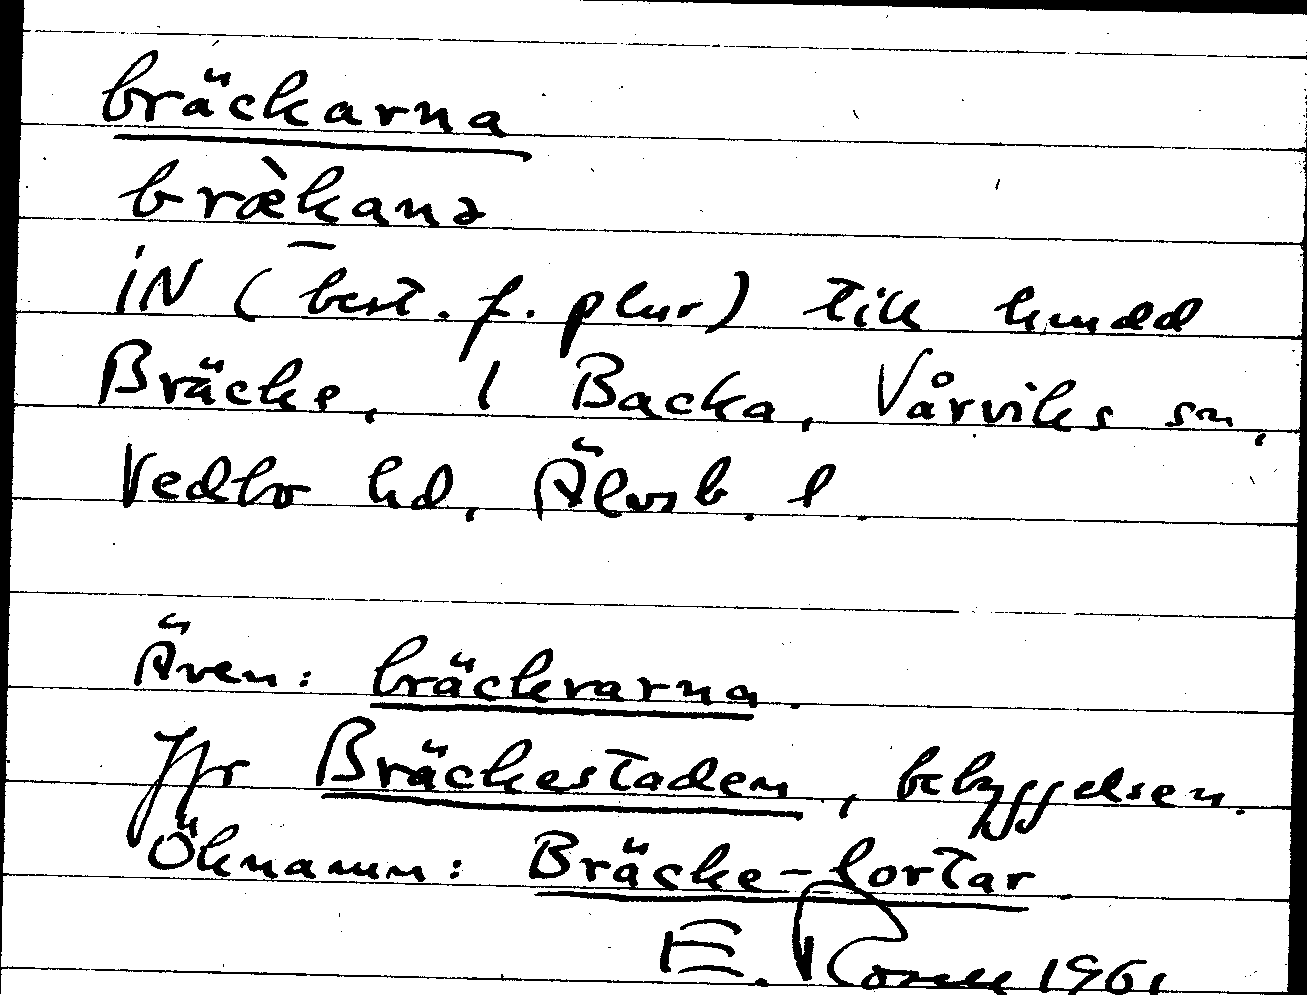 bräckarna
bræ̀kanə
iN (best. f. plur) till hmdd
Bräcke, 1 Backa, Vårviks sn,
Vedbo hd, Älvsb. l.
Även: bräckrarna.
Jfr Bräckestaden, bebyggelsen.
Öknamn: Bräcke-lortar
E. 1961